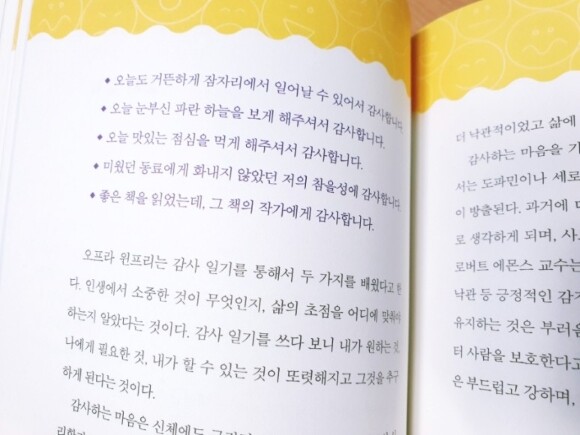 ◆ 오늘도 거뜬하게 잠자리에서 일어날 수 있어서 감사합니다.
◆ 오늘 눈부신 파란 하늘을 보게 해주셔서 감사합니다.
◆ 오늘 맛있는 점심을 먹게 해주셔서 감사합니다.
◆ 미웠던 동료에게 화내지 않았던 저의 참을성에 감사합니다.
◆ 좋은 책을 읽었는데, 그 책의 작가에게 감사합니다.
오프라 윈프리는 감사 일기를 통해서 두 가지를 배웠다고 한
다. 인생에서 소중한 것이 무엇인지, 삶의 초점을 어디에 맞춰야
하는지 알았다는 것이다. 감사 일기를 쓰다 보니 내가 원하는 것,
나에게 필요한 것, 내가 할 수 있는 것이 또렷해지고 그것을 추구
하게 된다는 것이다.
감사하는 마음은 신체에도
더 낙관적이었고 삶에
감사하는 마음을
서는 도파민이나
이 방출된다. 과거에
로 생각하게 되며,
로버트 에몬스 교수는
낙관 등 긍정적인
유지하는 것은 부러움
터 사람을 보호한다고
은 부드럽고 강하며,